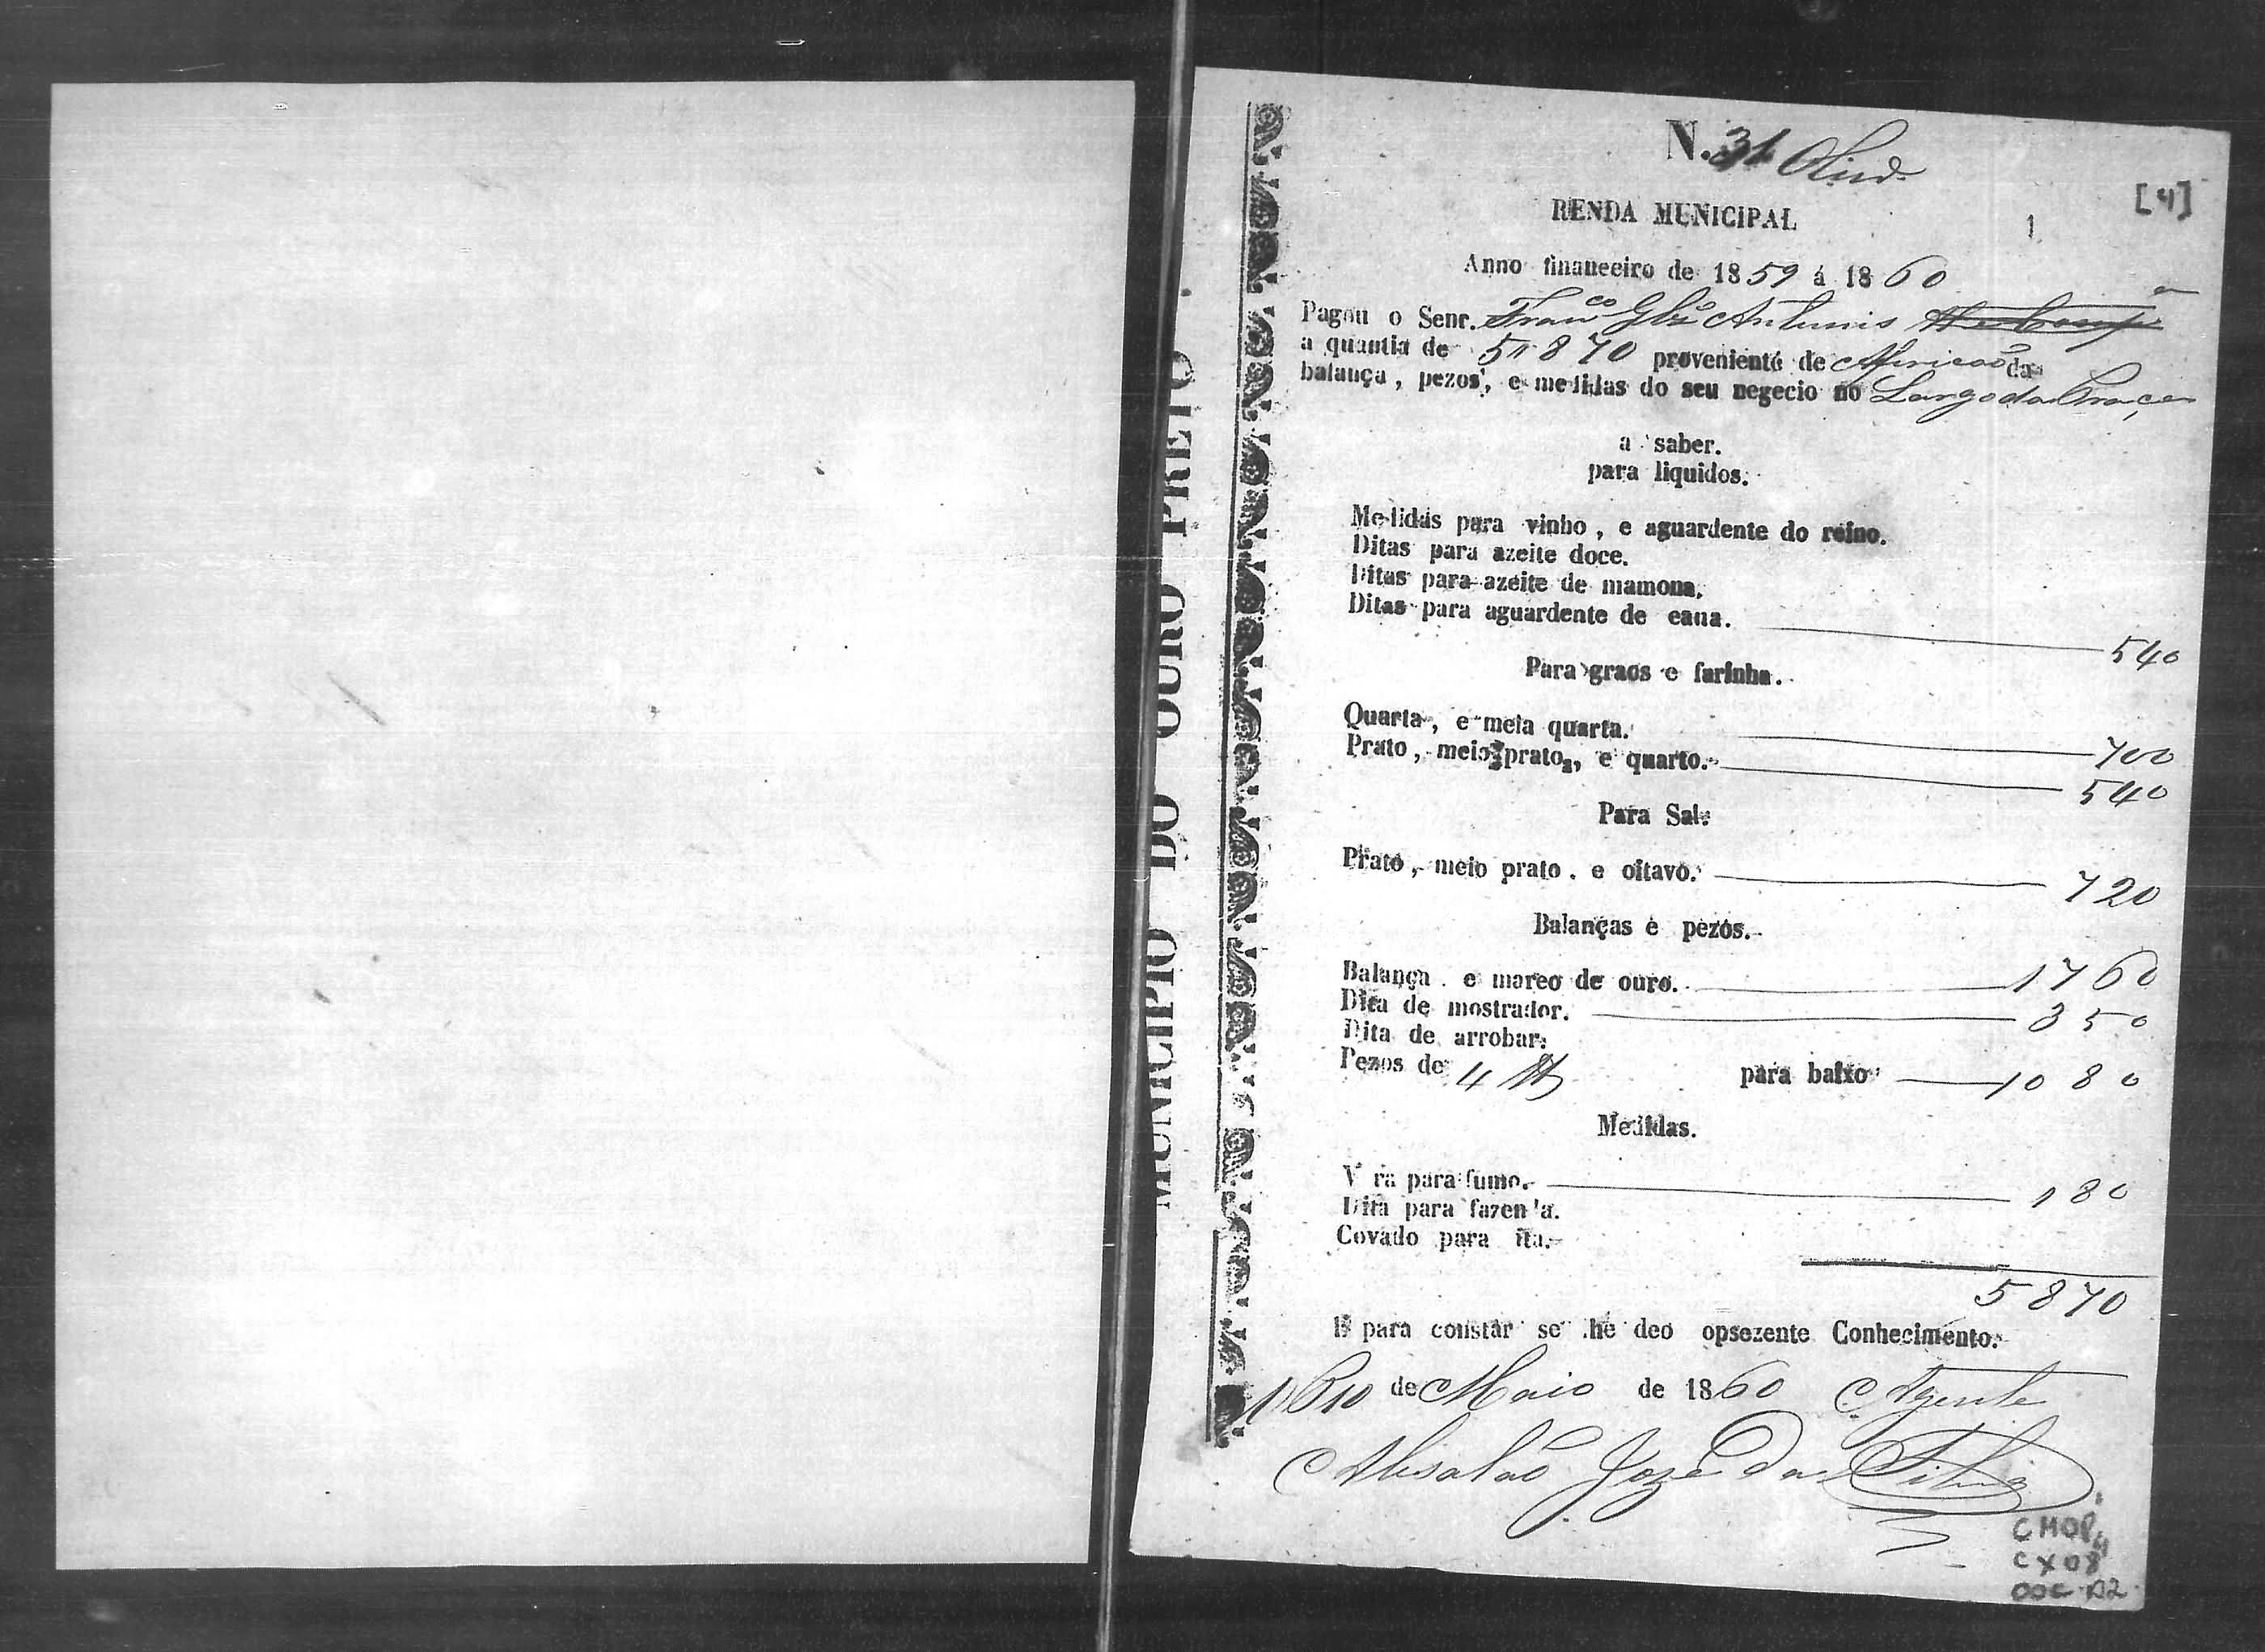 N. 31 Olivr.ª
[4]
RENDA MUNICIPAL
1
Anno financeiro de 1859 á 1860
Pagou o Senr. Fran.co Glz Antunis
a quantia de 5$870 proveniente de Afericaõ da
balança, pezos, e medidas do seu negecio no Largo da Praça
a saber.
para liquidos.
Medidas para vinho, e aguardente do reino.
Ditas para azeite doce.
Ditas para azeite de mamona.
Ditas para aguardente de cana. 540
Para graos e farinha.
Quarta, e meia quarta. 700
Prato, meio prato, e quarto. 540
Para Sal.
Prato, meio prato. e oitavo. 720
Balanças e pezos.
Balança. e marco de ouro. 1760
Dita de mostrador. 350
Dita de arrobar.
Pezos de 4 lb para baixo 1080
Medidas.
V ra para fumo. 180
Dita para fazen'a.
Covado para ita.
5870
E para constar se he deo opsezente Conhecimento.
10 de Maio de 1860 O Agente
Absalaõ Jozé da Silva
MUNICIPIO DO OURO PRETO
CMOP
CX 08
DOC 02